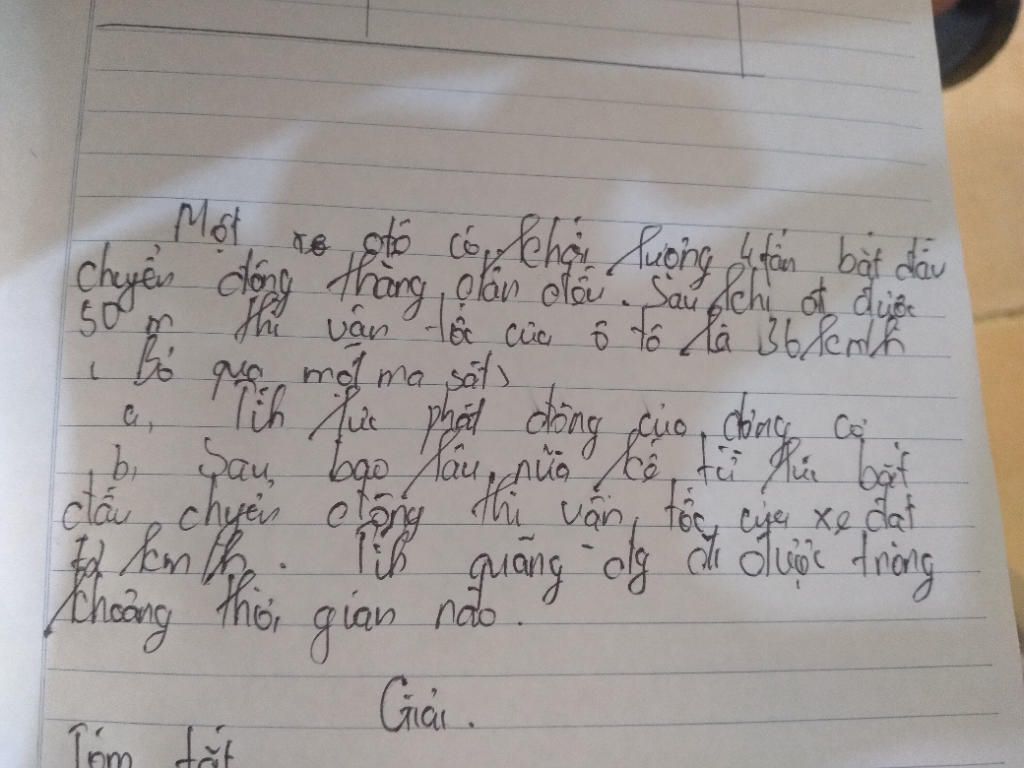 Một xe ôtô có khối lượng 4 tấn bắt đầu
chuyển động thẳng, dần đều. Sau khi đi được
50 m thì vận tốc của ô tô là 36 km/h
( Bỏ qua mọi ma sát)
a, Tíh lực phát động của động cơ
b, Sau bao lâu nữa kể từ lúc bắt
đầu chyển động thì vận tốc của xe đạt
km/h. Tíh quãng đg đi được trong
khoảng thời gian nào.
Giải.
Tóm tắt